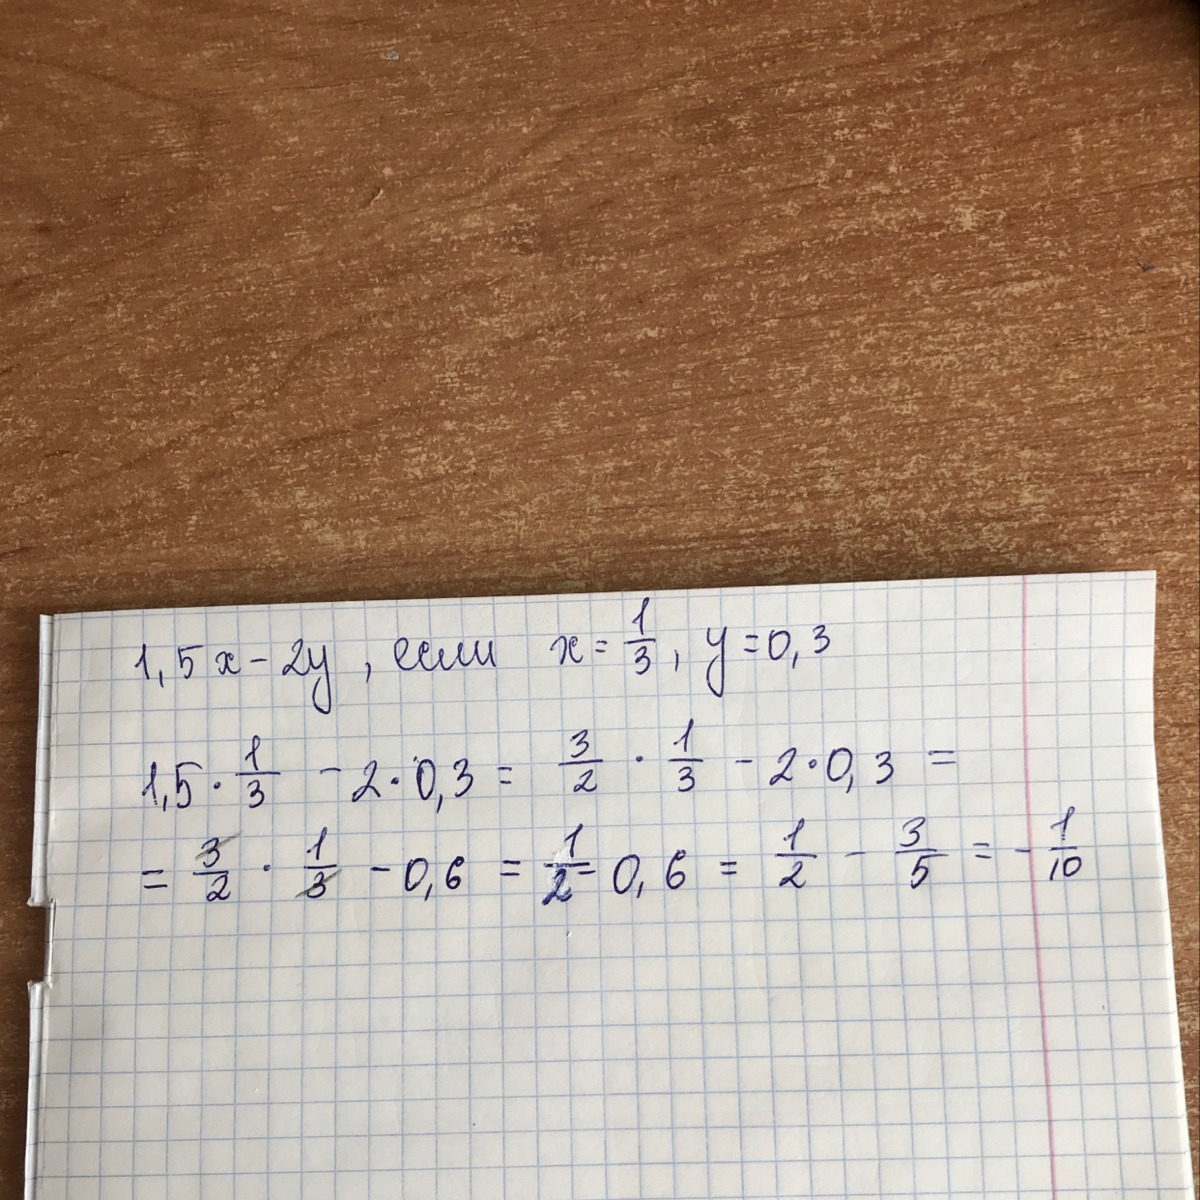 1,5x - 2y, если x = 1/3, y = 0,3
1,5 · 1/3 - 2 · 0,3 = 3/2 · 1/3 - 2 · 0,3 =
= 3/2 · 1/3 - 0,6 = 1/2 - 0,6 = 1/2 - 3/5 = - 1/10